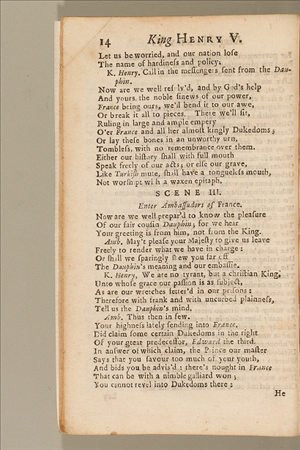 14 King HENRY V.
Let us be worried, and our nation lose
The name of hardiness and policy.
K. Henry. Call in the messengers sent from the Dau-
phin.
Now are we well resolv'd, and by God's help
And yours, the noble sinews of our power,
France being ours, we'll bend it to our awe,
Or break it all to pieces. There we'll sit,
Ruling in large and ample empery
O'er France and all her almost kingly Dukedoms;
Or lay these bones in an unworthy urn,
Tombless, with no remembrance over them.
Either our history shall with full mouth
Speak freely of our acts; or else our grave,
Like Turkish mute, shall have a tongueless mouth,
Not worshipt with a waxen epitaph.
SCENE III.
Enter Ambassadors of France.
Now are we well prepar'd to know the pleasure
Of our fair cousin Dauphin; for we hear
Your greeting is from him, not from the King.
Amb. May't please your Majesty to give us leave
Freely to render what we have in charge:
Or shall we sparingly shew you far off
The Dauphin's meaning and our embassie.
K. Henry, We are no tyrant, but a christian King,
Unto whose grace our passion is as subject,
As are our wretches fetter'd in our prisons:
Therefore with frank and with uncurbed plainness,
Tell us the Dauphin's mind.
Amb. Thus then in few.
Your highness lately sending into France,
Did claim some certain Dukedoms in the right
Of your great predecessor, Edward the third.
In answer of which claim, the Prince our master
Says that you savour too much of your youth,
And bids you be advis'd: there's nought in France
That can be with a nimble galliard won;
You cannot revel into Dukedoms there:
He